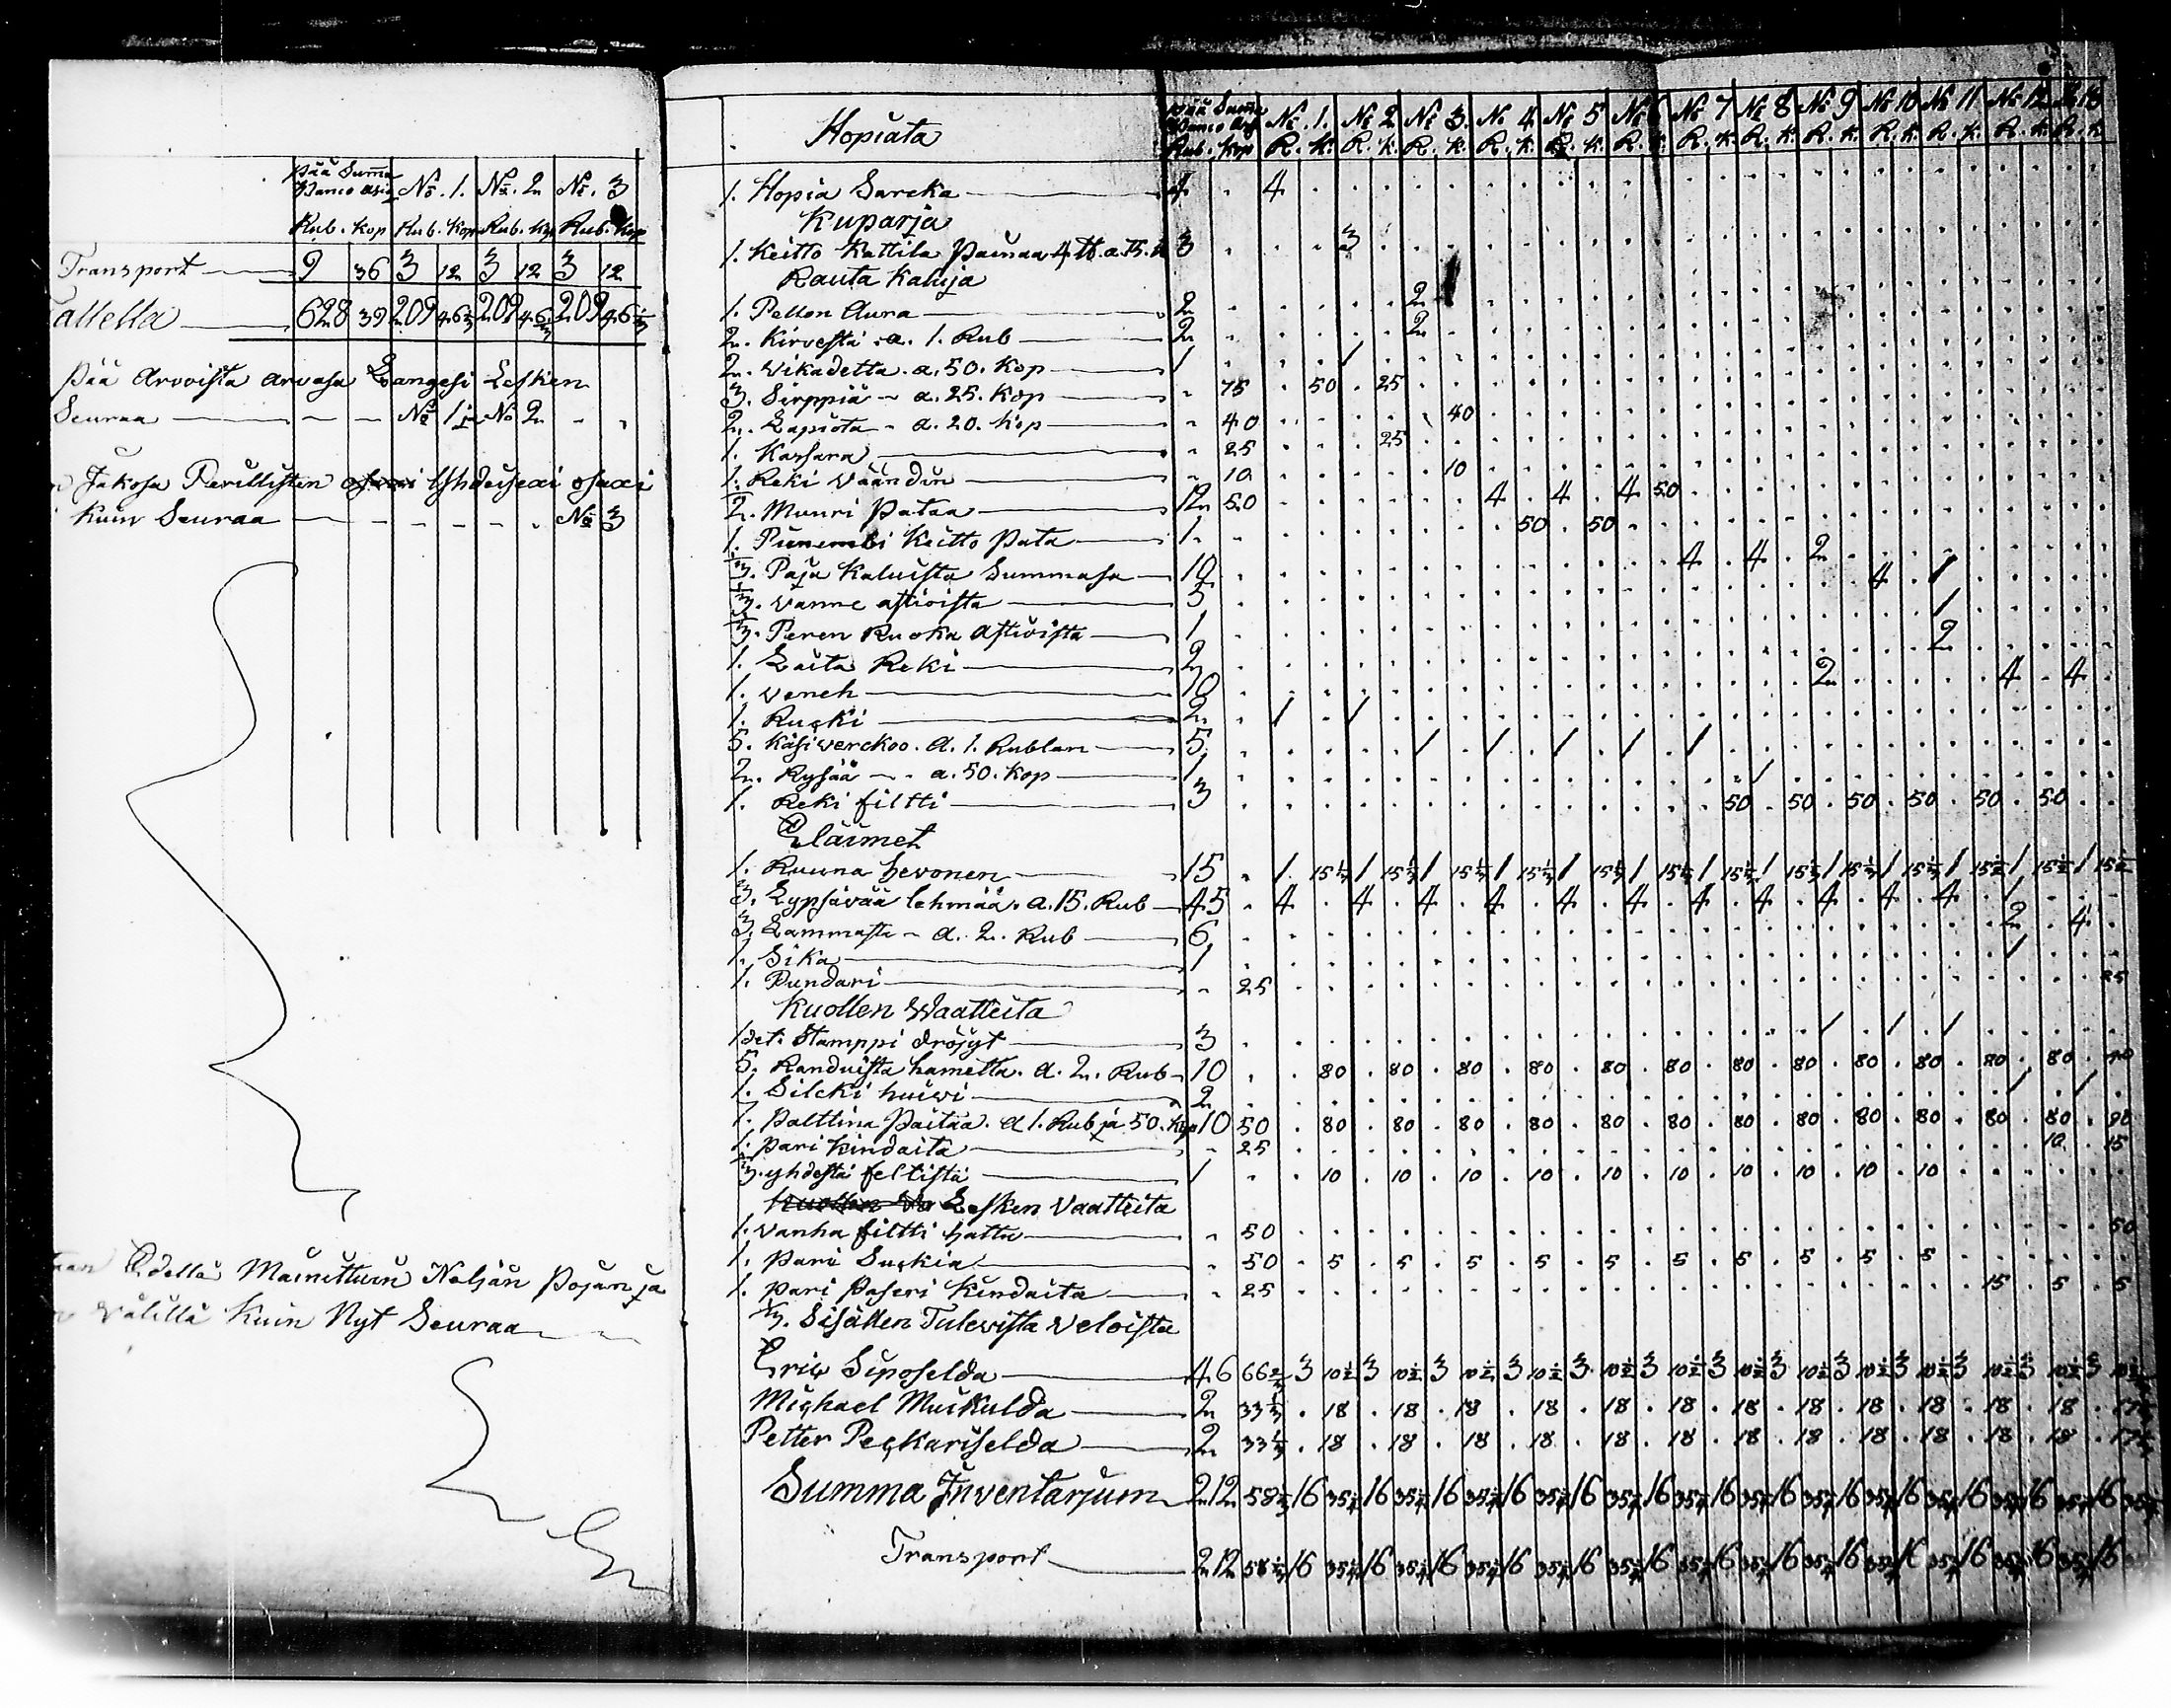 Pää Summa
Banco Asig No. 1. No. 2 No. 3
Rub. Kop Rub. Kop Rub. Kop Rub. Kop
Transport 9 36 3 12 3 12 3 12
628 39 209 46 1/3 209 46 1/3 209 46 1/3
Pää Arvoista arvasa Langesi Lesken
Seuraa No 1 ja No 2
Jakosa Perillisten Yhdeisexi osaxi
Kuin Seuraa No 3
Edellä Mainittuin Neljän Pojan ja
välillä Kuin Nyt Seuraa
Hopiata
Pää Summa
Banco Asig No. 1. No 2 No 3. No 4 No 5 No 6 No 7 No 8 No 9 No 10 No 11 No 12 No 13
Rub. Kop R. K. R. K. R. K. R. K. R. K. R. K. R. K. R. K. R. K. R. K. R. K. R. K. R. K.
1. Hopia Sarcka 4 . 4
Kuparja
1. Keitto Kattila Painaa 4 ℔. a. 75. k 3 . 3
Rauta Kaluja
1. Pellon Aura 2 . 2
2. Kirvestä .a. 1. Rub 2 . 2
2. Wikadetta. a. 50. Kop 1 . 1
3. Sirppiä - a. 25. Kop - 75 . 50 . 25
2. Lapiota - a. 20. Kop - 40 . 40
1. Kassara - 25 . 25
1. Reki Väändin - 10 . 10
2. Muuri Pataa 12 50 . 4 . 4 . 4 50
1. Pienembi Keitto Pata 1 - 50 . 50
1/3. Paja Kaluista Summasa 10 . 4 . 4 . 2
1/3. Vanne astioista 5 . 4 . 1
1/3. Peren Ruoka Astioista 1 . 1
1. Laita Reki 2 . 2
1. Veneh 10 . 2 . 4 . 4
1. Ruocki 2 . 1 . 1
5. Käsiverckoo. A. 1. Rublan 5 . 1 . 1 . 1 . 1 . 1
2. Rysää - - a. 50. Kop 1 . 1
1. Reki filtti 3 . 50 . 50 . 50 . 50 . 50 . 50
Eläimet
1. Ruuna hevonen 15 . 1 15 1/3 1 15 1/3 1 15 1/3 1 15 1/3 1 15 1/3 1 15 1/3 1 15 1/3 1 15 1/3 1 15 1/3 1 15 1/3 1 15 1/2 1 15 1/2 1 15 1/2
3. Lypsävää lehmää. a. 15. Rub 45 . 4 . 4 . 4 . 4 . 4 . 4 . 4 . 4 . 4 . 4 . 4 . 1
3. Lammasta - a. 2. Rub 6 . 2 . 4
1. Sika 1 . 1
1. Pundari - 25 . 25
Kuollen Waatteita
1 det: Stamppi dröijyt 3 . 1 . 1 . 1
5. Randuista hametta. a. 2. Rub 10 . 80 . 80 . 80 . 80 . 80 . 80 . 80 . 80 . 80 . 80 . 80 . 80 . 40
1. Silcki huiwi 2 . 1 . 1
1. Palttina Paitaa. a 1. Rub ja 50. Kop 10 50 . 80 . 80 . 80 . 80 . 80 . 80 . 80 . 80 . 80 . 80 . 80 . 80 . 90
1. Pari Kindaita - 25 . 10 . 15
1/3. yhdestä feltistä 1 . 10 . 10 . 10 . 10 . 10 . 10 . 10 . 10 . 10 . 10
Lesken Vaatteita
1. Vanha filtti hattu - 50 . 50
1. Pari Suckia - 50 . 5 . 5 . 5 . 5 . 5 . 5 . 5 . 5 . 5 . 5
1. Pari Paseri Kindaita - 25 . 15 . 5 . 5
1/3. Sisällen Tulevista Veloista
Eric Siposelda 46 66 2/3 3 10 1/2 3 10 1/2 3 10 1/2 3 10 1/2 3 10 1/2 3 10 1/2 3 10 1/2 3 10 1/2 3 10 1/2 3 10 1/2 3 10 1/2 3 10 1/2
Michael Muikulda 2 33 1/3 . 18 . 18 . 18 . 18 . 18 . 18 . 18 . 18 . 18 . 18 . 18 . 18 . 17 1/3
Petter Peckariselda 2 33 1/3 . 18 . 18 . 18 . 18 . 18 . 18 . 18 . 18 . 18 . 18 . 18 . 18 . 17 1/3
Summa Inventarjum 212 58 1/3 16 35 16 35 16 35 16 35 16 35 16 35 16 35 16 35 16 35 16 35 16 35 16 35 16 35
Transport 212 58 1/3 16 35 16 35 16 35 16 35 16 35 16 35 16 35 16 35 16 35 16 35 16 35 16 35 16